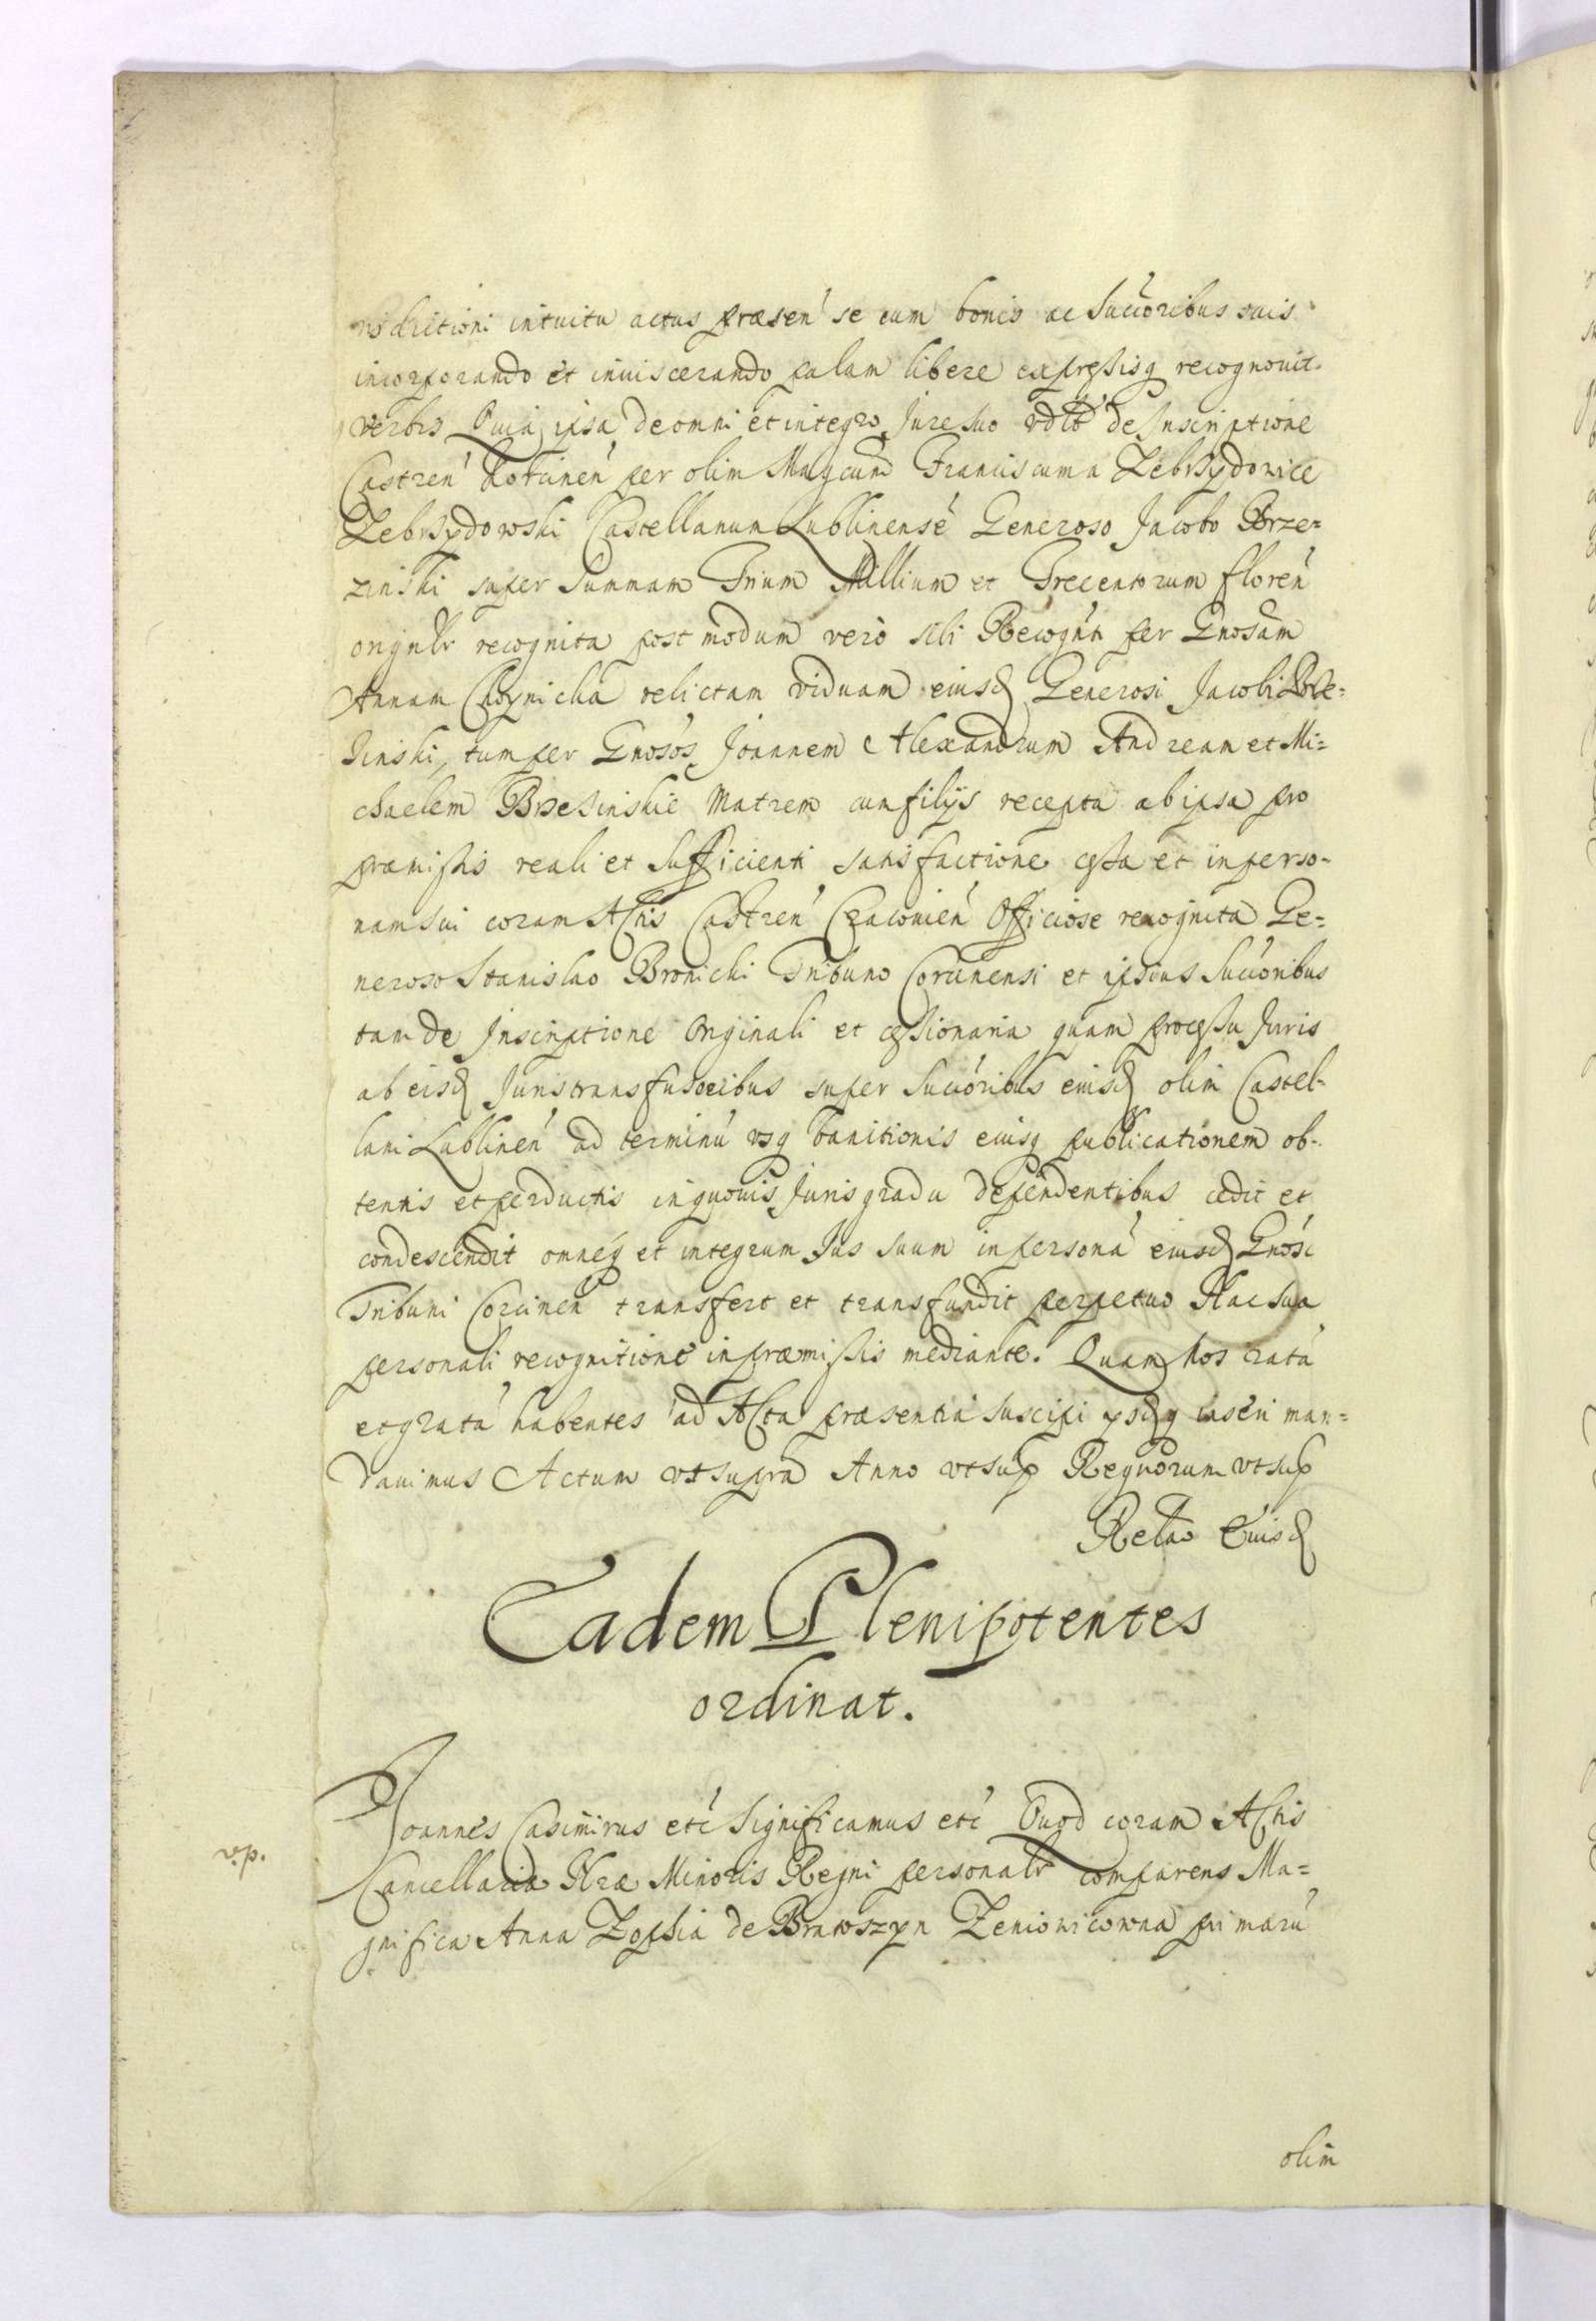 risdictioni intuitu actus præsen' se cum bonis ac Succoribus suis
incorporando et inuiscerando palam libere expreßisq recognouit
verbis Quia ipsa de omni et integro Jure suo de Inscriptione
Castren' per olim Magcum Franciscum a Zebrzydowice
Zebrzydowski Castellanum Lublinense Generoso Jacobo Brze=
zinski super Summam Trium Millium et Trecentorum floren'
orignlr recognita post modum vero sibi per Gnosam
Annam relictam viduam eiusd Generosi Jacobi Brze=
zinski, tum per Gnosos Joannem Alexandrum Andream et Mi=
chaelem Brzezinskie Matrem cum filijs recepta ab ipsa pro
præmißis reali et Sufficienti satisfactione ceßa et in perso-
nam sui coram Actis Castren' Cracouien' Officiose recognita Ge=
neroso Stanislao Bronicki Tribuno Corcinensi et ipsius Succoribus
tam de Inscriptione Originali et ceßionaria quam proceßu Juris
ab eisd Juris transfusoribus super Succoribus eiusd olim Castel-
lani Lublinen' ad terminu vsq banitionis eiusq publicationem ob-
tentis et perductis in quouis Juris gradu dependentibus cedit et
condescendit omneq et integrum Jus suum in persona eiusd Gnosi
Tribuni Corcinen' transfert et transfundit perpetuo Hac sua
personali recognitione in præmißis mediante. Quam Nos rata
et grata habentes ad Acta præsentia suscipi inseri man=
dauimus Actum vt supra Anno vt sup Regnorum vt sup
Relao Eiusd
Eadem Plenipotentes
ordinat.
Joannes Casimirus etc Significamus etc Quod coram Actis
Cancellariæ Nræ Minoris Regni personalr comparens Ma=
gnifica Anna Zophia de Bratoszyn Zenowicowna primaru
olim